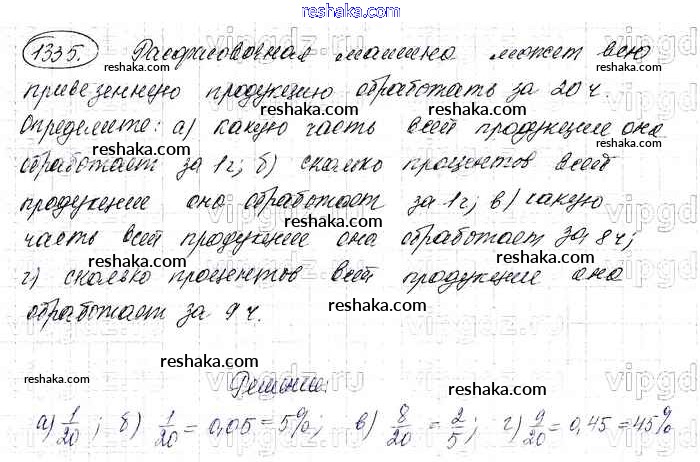 reshaka.com
1335. Расфасовочная машина может всю
reshaka.com reshaka.com
привезенную продукцию обработать за 20 ч.
reshaka.com
Определите: а) какую часть всей продукции она
обработает за 1ч; б) сколько процентов всей
reshaka.com reshaka.com
продукции она обработает за 1ч; в) какую
reshaka.com
часть всей продукции она обработает за 8ч;
reshaka.com reshaka.com
г) сколько процентов всей продукции она
обработает за 9ч.
reshaka.com
vipgdz.ru
reshaka.com
Решение:
reshaka.com reshaka.com
а) 1/20; б) 1/20 = 0,05 = 5%; в) 8/20 = 2/5; г) 9/20 = 0,45 = 45%
reshaka.com